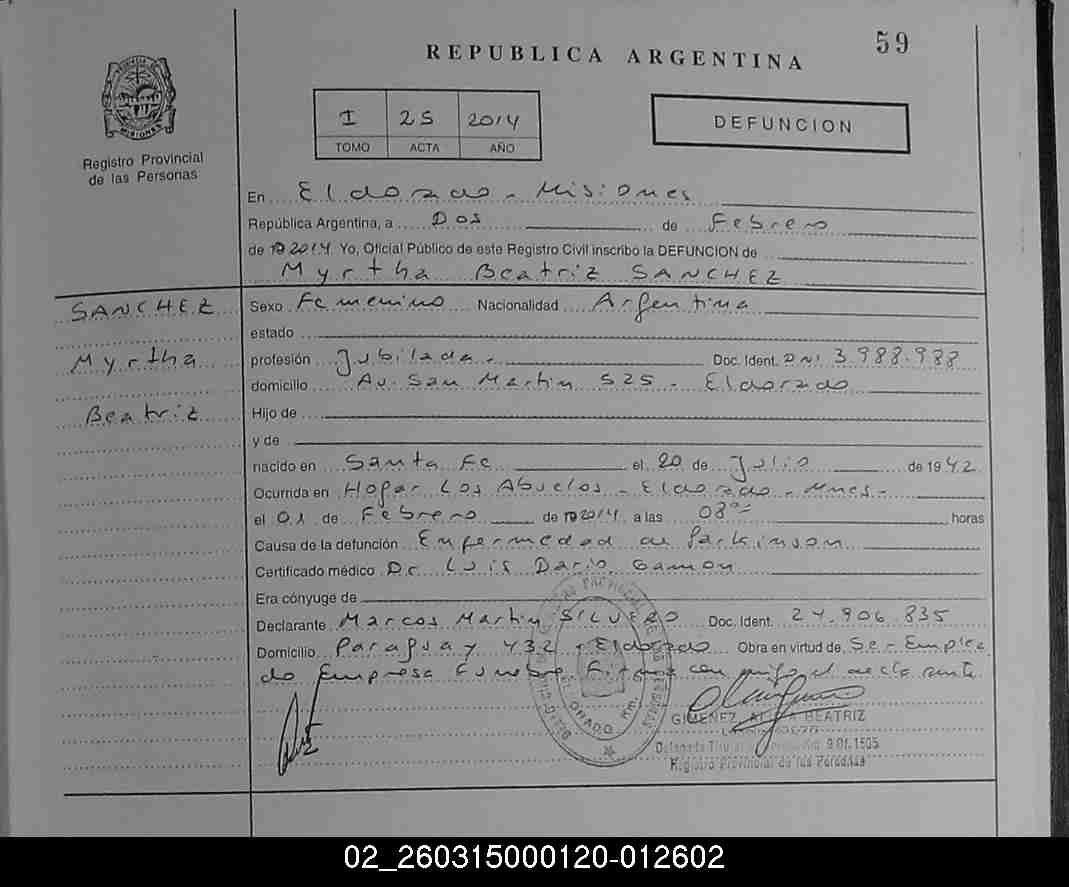 59
REPUBLICA ARGENTINA
PROVINCIA DE MISIONES
Registro Provincial
de las Personas
I 25 2014
TOMO ACTA AÑO
DEFUNCION
En El dorado - Misiones
República Argentina, a Dos de Febrero
de 19 2014 Yo, Oficial Público de este Registro Civil inscribo la DEFUNCION de
Myrtha Beatriz SANCHEZ
SANCHEZ
Myrtha
Beatriz
Sexo Femenino Nacionalidad Argentina
estado
profesión Jubilada - Doc. Ident. DNI 3.988.988
domicilio Av. San Martin 525 - Eldorado
Hijo de
y de
nacido en Santa Fe el 20 de Julio de 1942
Ocurrida en Hogar Los Abuelos - Eldorado - Mnes -
el 01 de Febrero de 19 2014 a las 08 horas
Causa de la defunción Enfermedad de Parkinson
Certificado médico Dr. Luis Dario Gamon
Era cónyuge de
Declarante Marcos Martin SILVERO Doc. Ident. 24.906.835
Domicilio Paraguay 432 - Eldorado Obra en virtud de Ser - Emplea
do Empresa Funebre Firma con migo el declarante
GIMENEZ BEATRIZ
Registro Provincial de las Personas
02_260315000120-012602